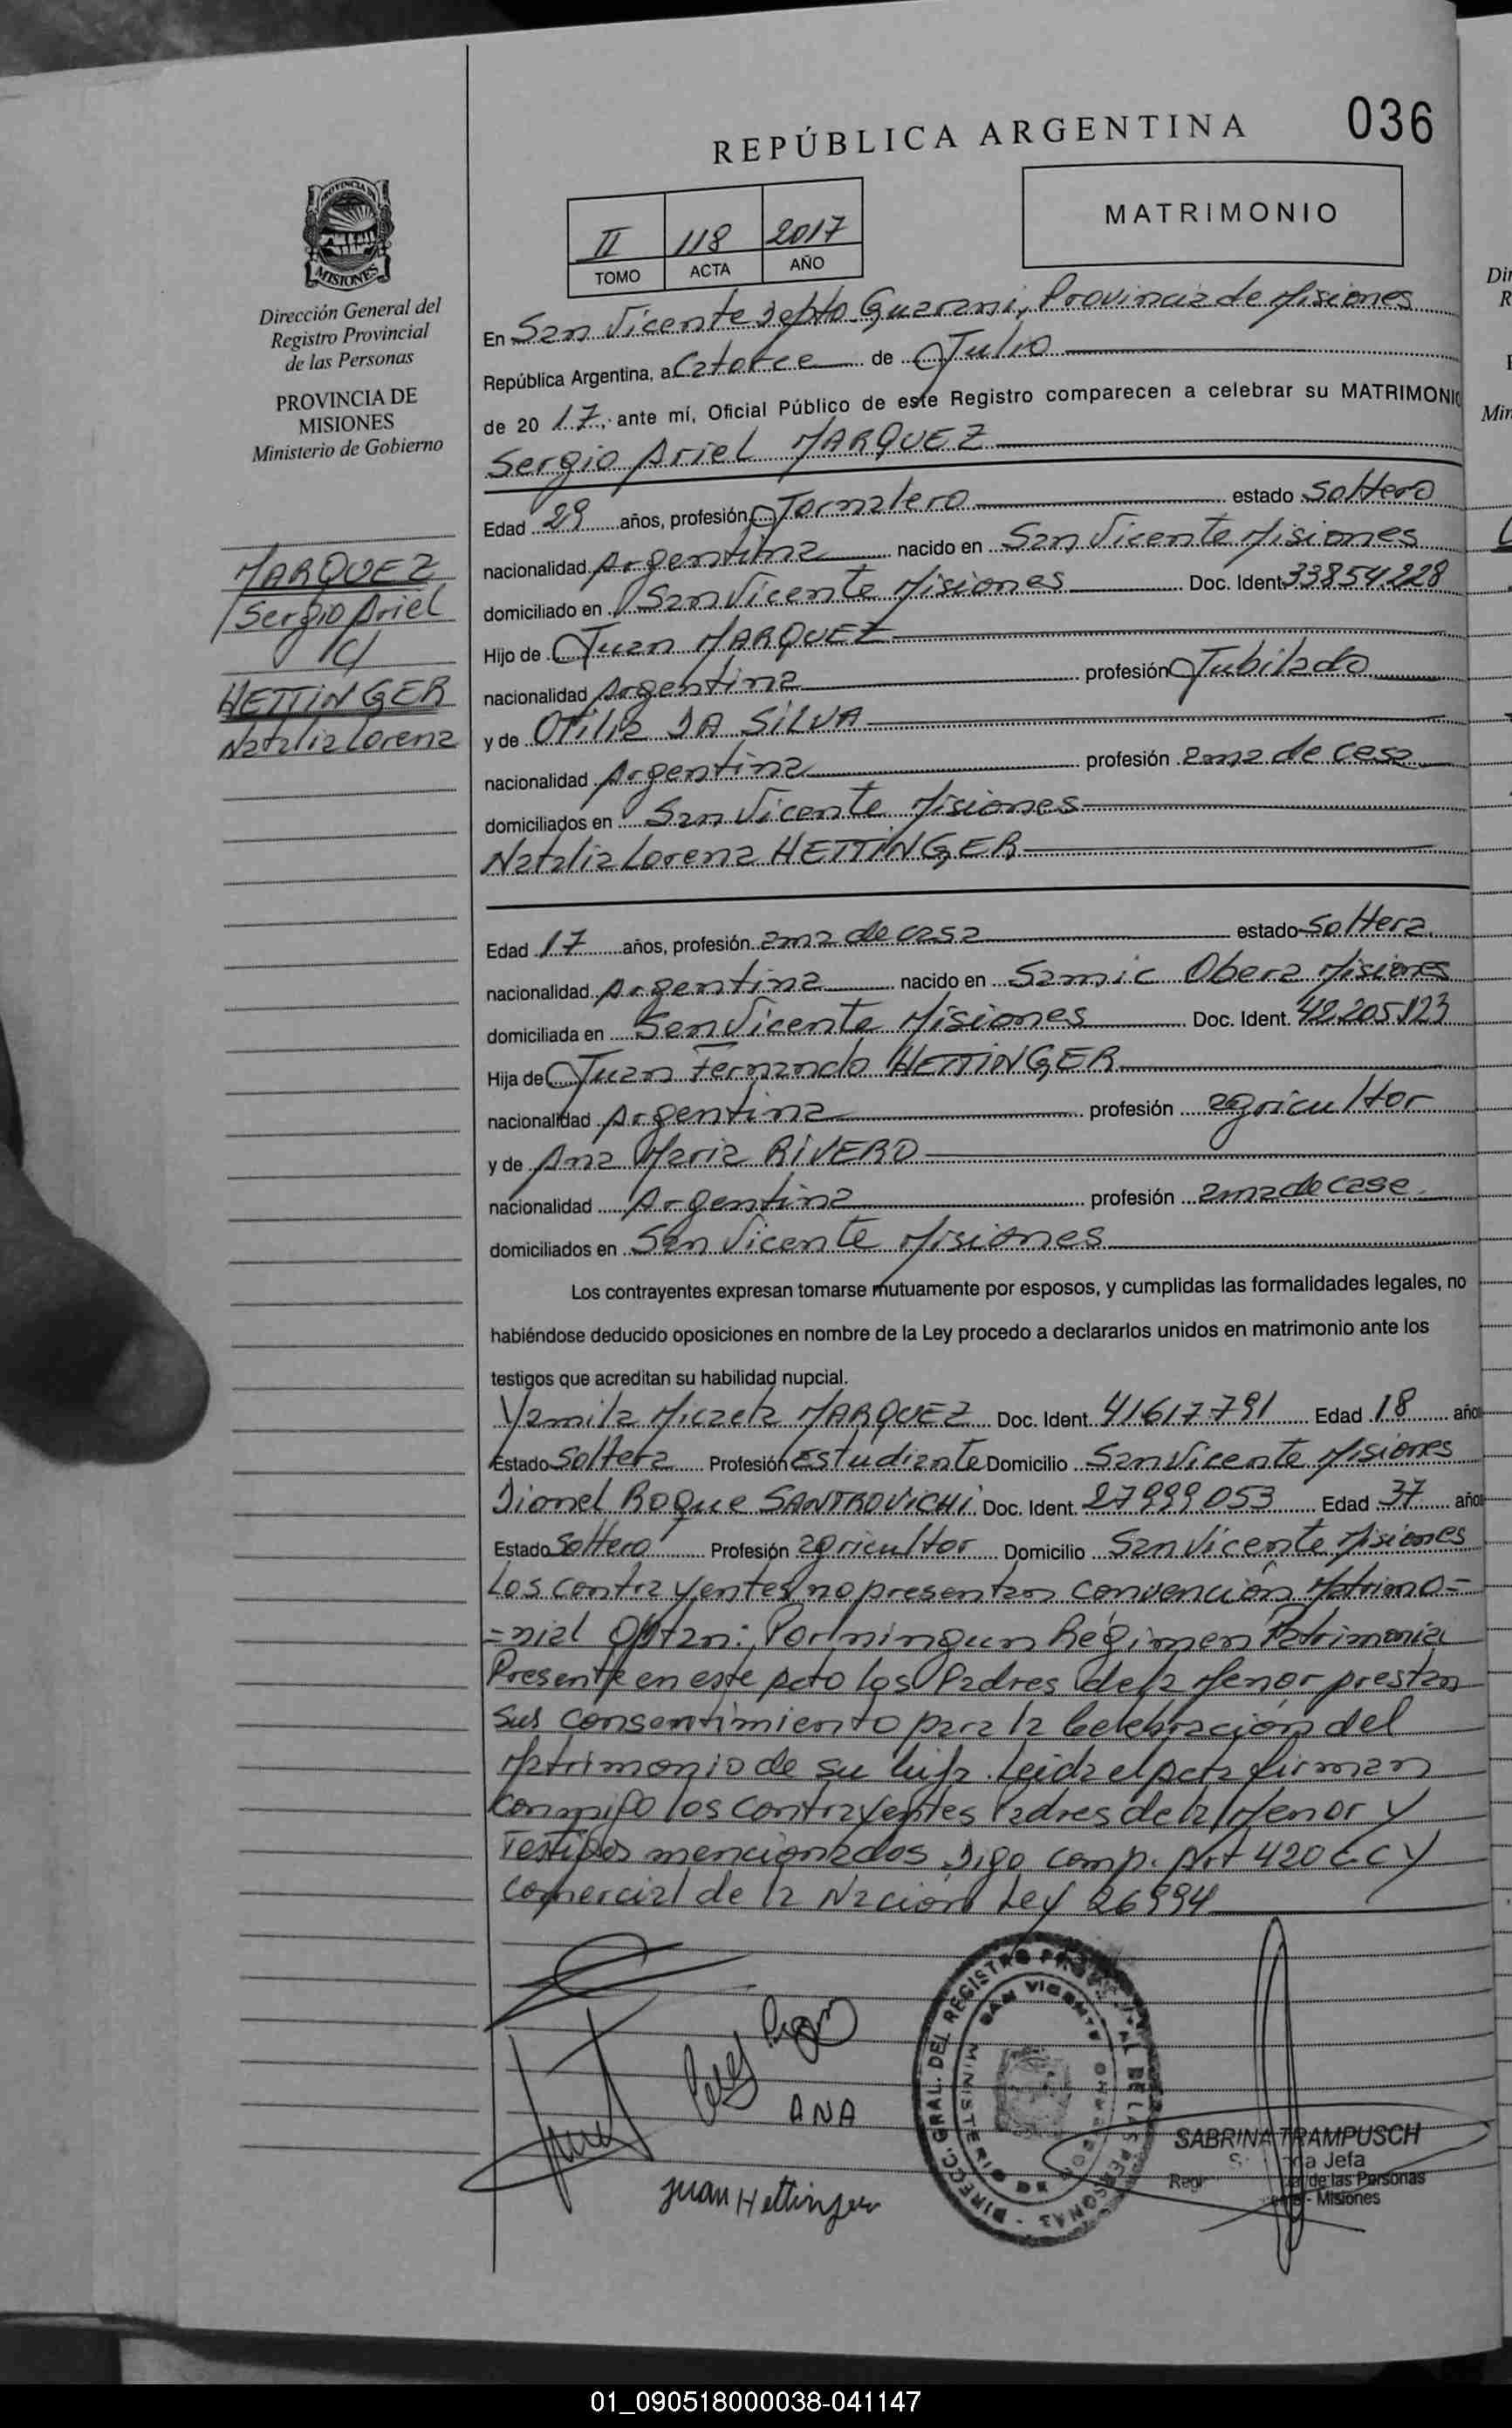 036
REPÚBLICA ARGENTINA
MATRIMONIO
II 118 2017
TOMO ACTA AÑO
PROVINCIA DE
MISIONES
Dirección General del
Registro Provincial
de las Personas
PROVINCIA DE
MISIONES
Ministerio de Gobierno
MARQUEZ
Sergio Ariel
c/
HETTINGER
Natalia Lorena
En San Vicente Depto. Guarani, Provincia de Misiones
República Argentina, a Catorce de Julio
de 20 17, ante mí, Oficial Público de este Registro comparecen a celebrar su MATRIMONIO
Sergio Ariel MARQUEZ
Edad 29 años, profesión Jornalero estado Soltero
nacionalidad Argentina nacido en San Vicente Misiones
domiciliado en San Vicente Misiones Doc. Ident. 33854228
Hijo de Juan MARQUEZ
nacionalidad Argentina profesión Jubilado
y de Otilia DA SILVA
nacionalidad Argentina profesión ama de casa
domiciliados en San Vicente Misiones
Natalia Lorena HETTINGER
Edad 17 años, profesión ama de casa estado Soltera
nacionalidad Argentina nacido en Samic Obera Misiones
domiciliada en San Vicente Misiones Doc. Ident. 42.205.123
Hija de Juan Fernando HETTINGER
nacionalidad Argentina profesión agricultor
y de Ana Maria RIVERO
nacionalidad Argentina profesión ama de casa
domiciliados en San Vicente Misiones
Los contrayentes expresan tomarse mutuamente por esposos, y cumplidas las formalidades legales, no
habiéndose deducido oposiciones en nombre de la Ley procedo a declararlos unidos en matrimonio ante los
testigos que acreditan su habilidad nupcial.
Yamila Micaela MARQUEZ Doc. Ident. 41617791 Edad 18 años
Estado Soltera Profesión Estudiante Domicilio San Vicente Misiones
Dionel Roque SANTROVICHI Doc. Ident. 27999053 Edad 37 años
Estado Soltero Profesión agricultor Domicilio San Vicente Misiones
Los contrayentes no presentan convención Matrimo=
=nial Optan: Por ningun Régimen Patrimonial
Presente en este acto los Padres de la Menor prestan
sus consentimiento para la Celebración del
Matrimonio de su hija. Leida el acta firman
conmigo los contrayentes Padres de la Menor y
Testigos mencionados Digo comp. Art 420 C C y
comercial de la Nación Ley 26994
ANA
Juan Hettinger
DIRECC. GRAL. DEL REGISTRO PROVINCIAL DE LAS PERSONAS
SAN VICENTE
MINISTERIO DE GOBIERNO
SABRINA TRAMPUSCH
Jefa
de las Personas
- Misiones
01_090518000038-041147